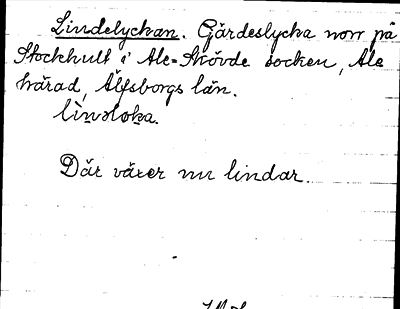 Lindelyckan. Gärdeslycka norr på
Stockhult i Ale-Skövde socken, Ale
härad, Älfsborgs län.
Där växer nu lindar.